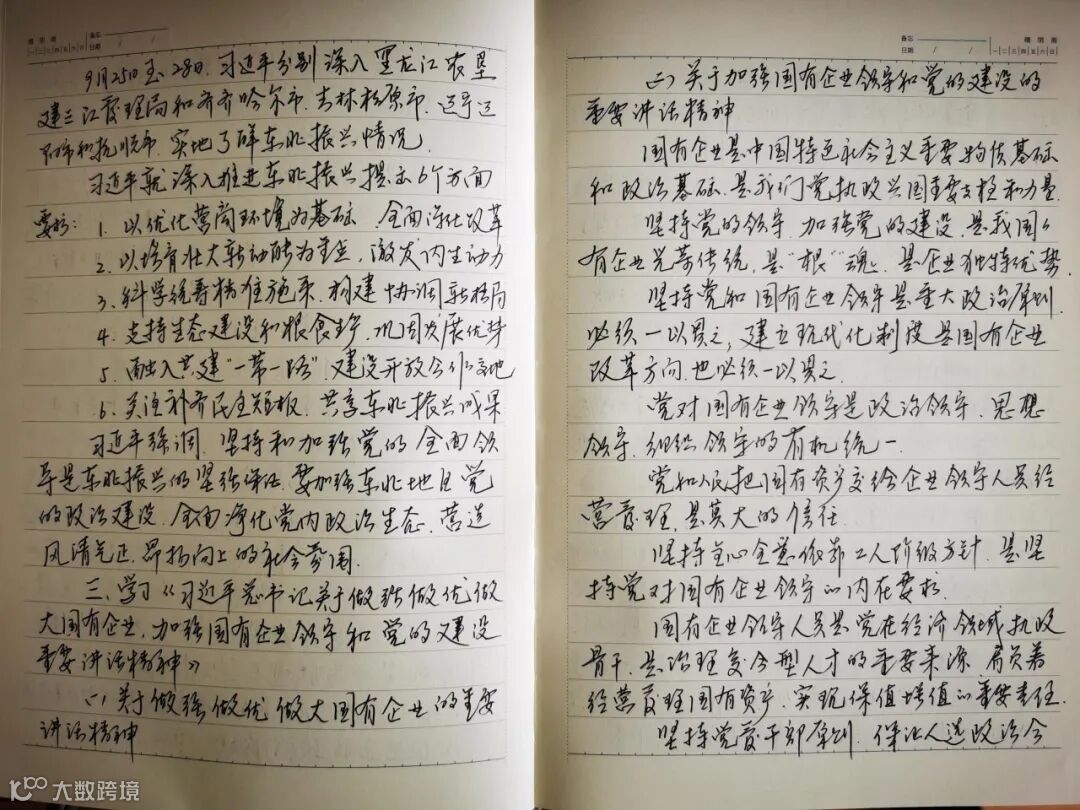 晴 阴 雨
一 二 三 四 五 六 日
备忘
日期 / /
9月25日至28日，习近平分别深入黑龙江农垦
建三江管理局和齐齐哈尔市、吉林松原市、辽宁辽
阳市和抚顺市，实地了解东北振兴情况。
习近平就深入推进东北振兴提出6个方面
要求：1. 以优化营商环境为基础，全面深化改革
2. 以培育壮大新动能为重点，激发内生动力
3. 科学统筹精准施策，构建协调新格局
4. 支持生态建设和粮食生产，巩固发展优势
5. 融入共建“一带一路”，建设开放合作高地
6. 关注补齐民生短板，共享东北振兴成果
习近平强调，坚持和加强党的全面领
导是东北振兴的坚强保证，要加强东北地区党
的政治建设，全面净化党内政治生态，营造
风清气正、昂扬向上的社会氛围。
三、学习《习近平总书记关于做强做优做
大国有企业，加强国有企业领导和党的建设
重要讲话精神》
(一) 关于做强做优做大国有企业的重要
讲话精神
备忘
日期 / /
晴 阴 雨
一 二 三 四 五 六 日
(二) 关于加强国有企业领导和党的建设的
重要讲话精神
国有企业是中国特色社会主义重要物质基础
和政治基础，是我们党执政兴国重要支柱和力量
坚持党的领导，加强党的建设，是我国
有企业光荣传统，是“根”“魂”，是企业独特优势.
坚持党和国有企业领导是重大政治原则
必须一以贯之，建立现代化制度是国有企业
改革方向，也必须一以贯之.
党对国有企业领导是政治领导、思想
领导、组织领导的有机统一
党和人民把国有资产交给企业领导人员经
营管理，是莫大的信任.
坚持全心全意依靠工人阶级方针，是坚
持党对国有企业领导的内在要求.
国有企业领导人员是党在经济领域执政
骨干，是治理复合型人才的重要来源，肩负着
经营管理国有资产，实现保值增值的重要责任.
坚持党管干部原则，保证人选政治合
大数跨境